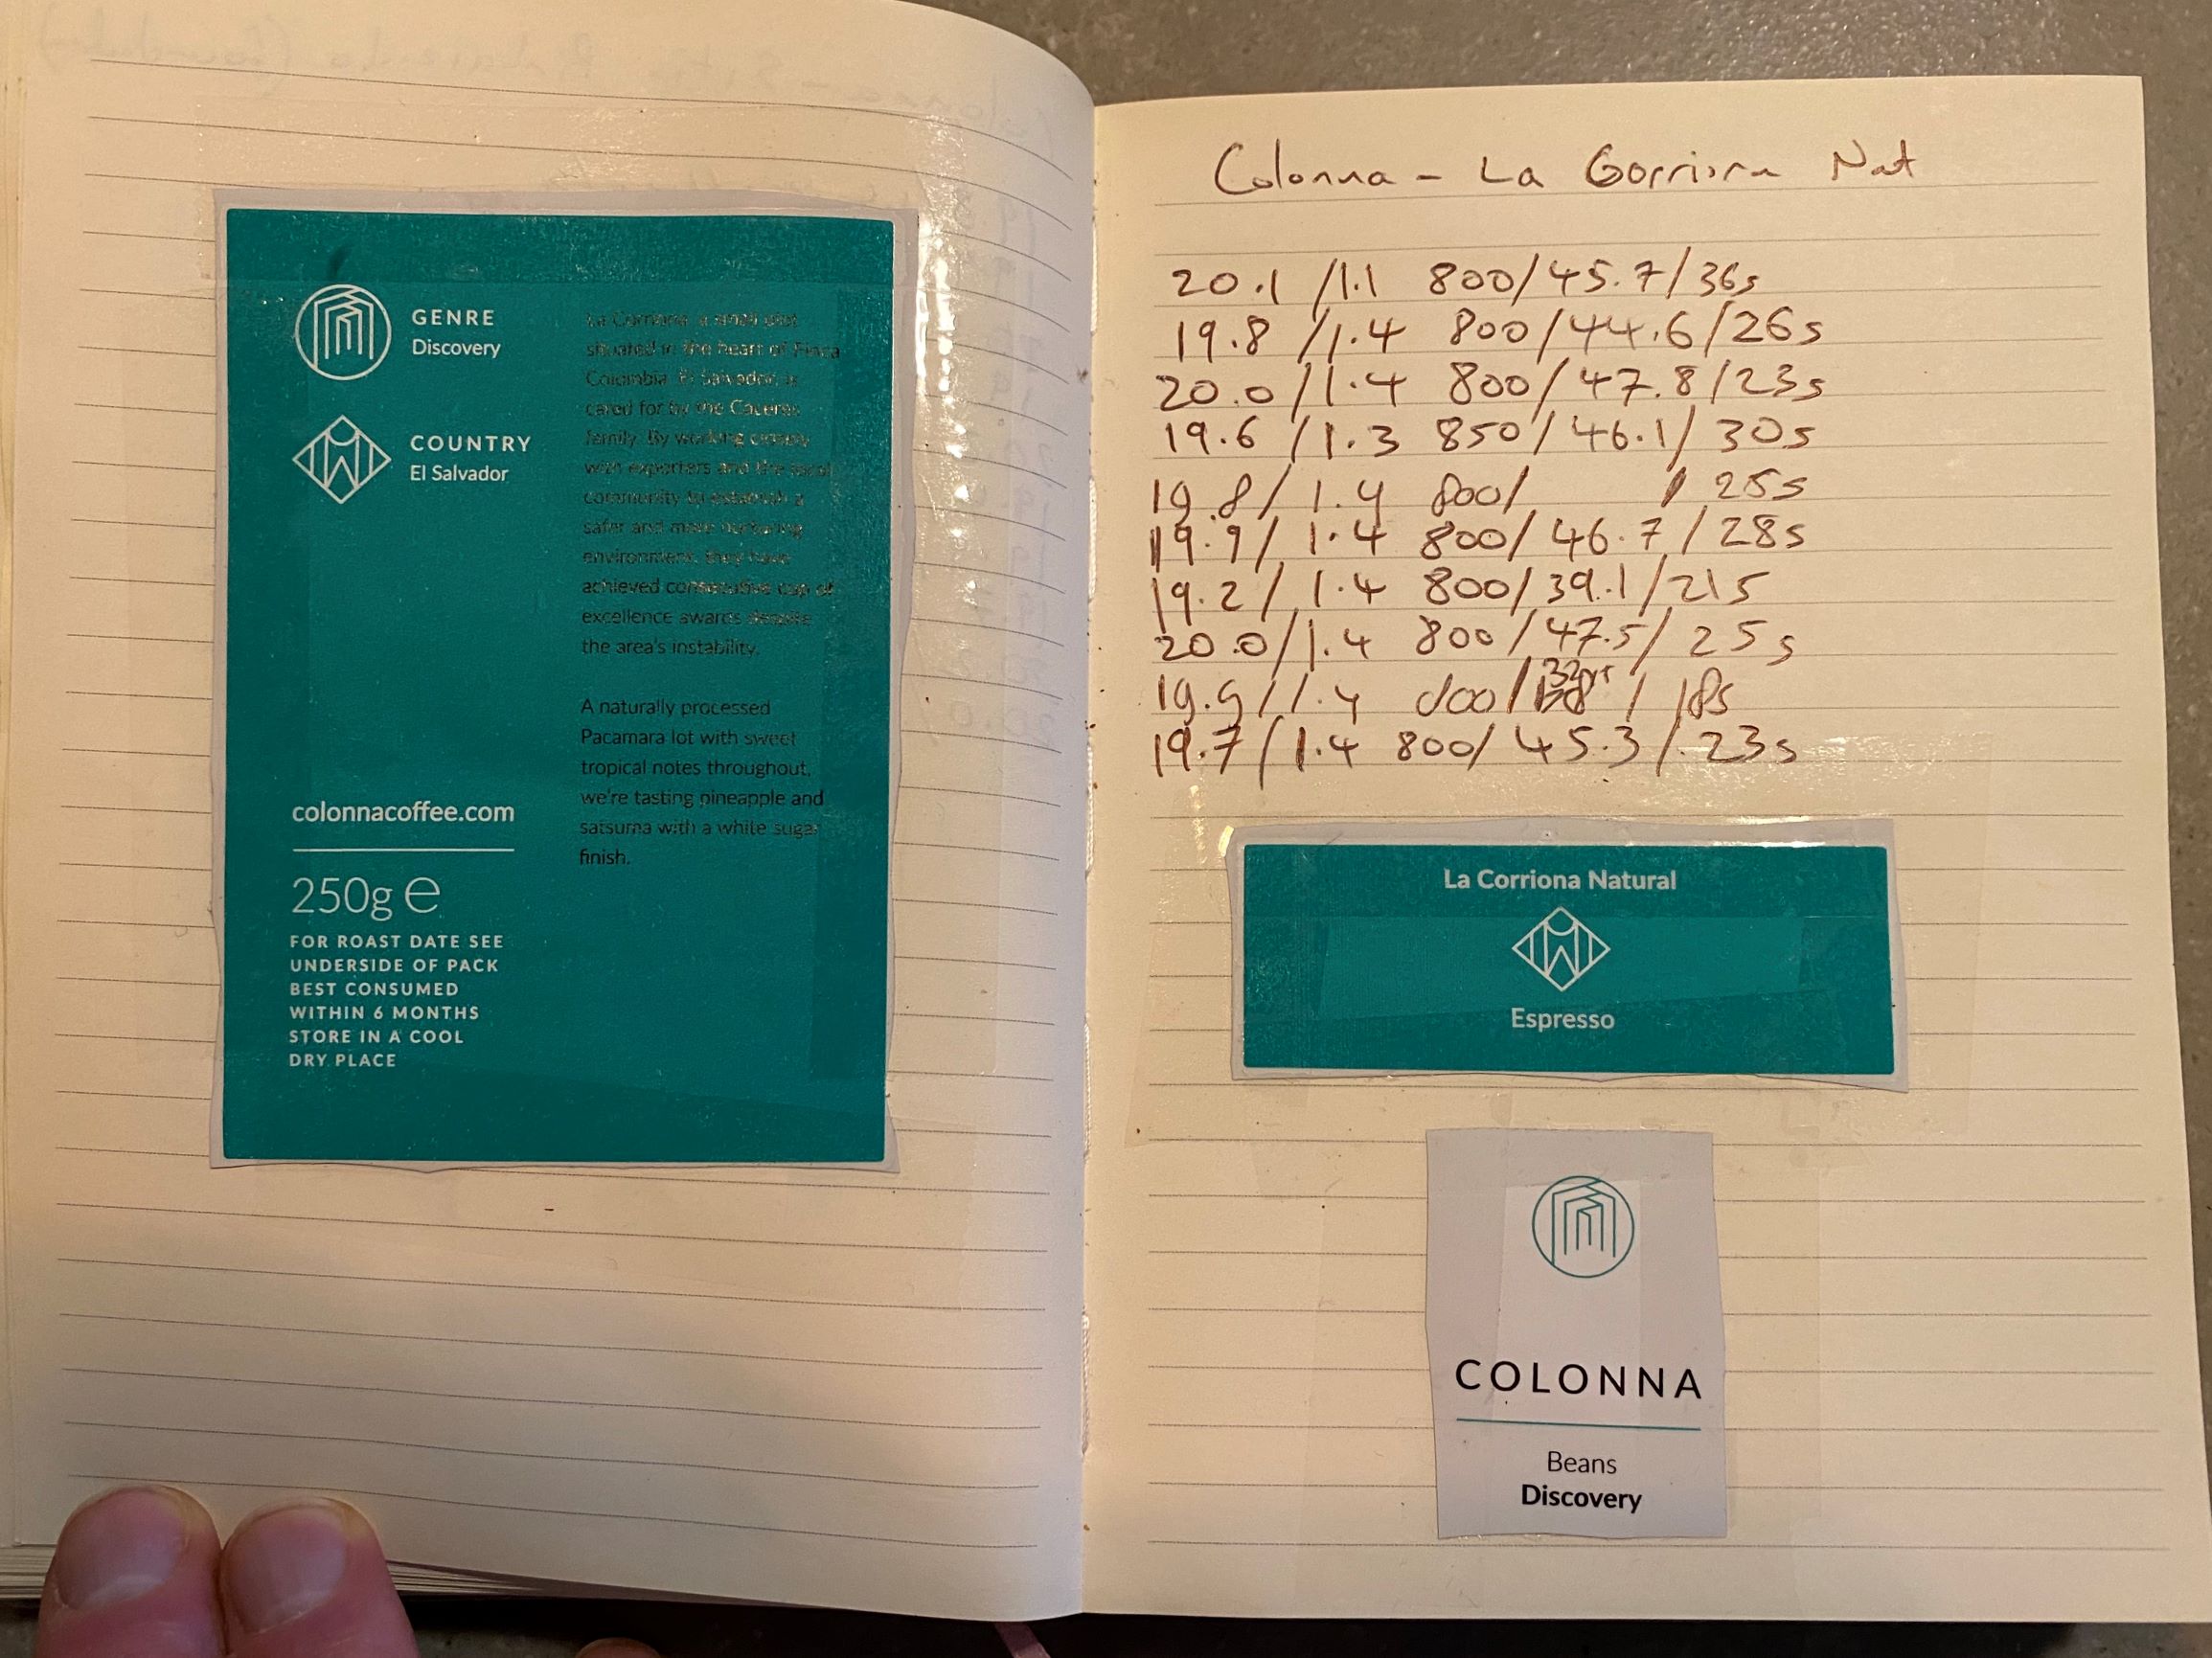 GENRE
Discovery
COUNTRY
El Salvador
colonnacoffee.com
250g ℮
FOR ROAST DATE SEE
UNDERSIDE OF PACK
BEST CONSUMED
WITHIN 6 MONTHS
STORE IN A COOL
DRY PLACE
La Corriona, a small plot
situated in the heart of Finca
Colombia, El Salvador, is
cared for by the Caceres
family. By working closely
with exporters and the local
community to establish a
safer and more nurturing
environment, they have
achieved consecutive cup of
excellence awards despite
the area's instability.
A naturally processed
Pacamara lot with sweet
tropical notes throughout,
we're tasting pineapple and
satsuma with a white sugar
finish.
Colonna - La Gorriona Nat
20.1 / 1.1 800/45.7/36s
19.8 / 1.4 800/44.6/26s
20.0/1.4 800/47.8/23s
19.6 /1.3 850/46.1/30s
19.8/ 1.4 800/ / 25s
19.9/ 1.4 800/46.7/28s
19.2/ 1.4 800/39.1/21s
20.0/1.4 800/47.5/25s
19.9/1.4 800/ / 18s
19.7/1.4 800/45.3/23s
La Corriona Natural
Espresso
COLONNA
Beans
Discovery